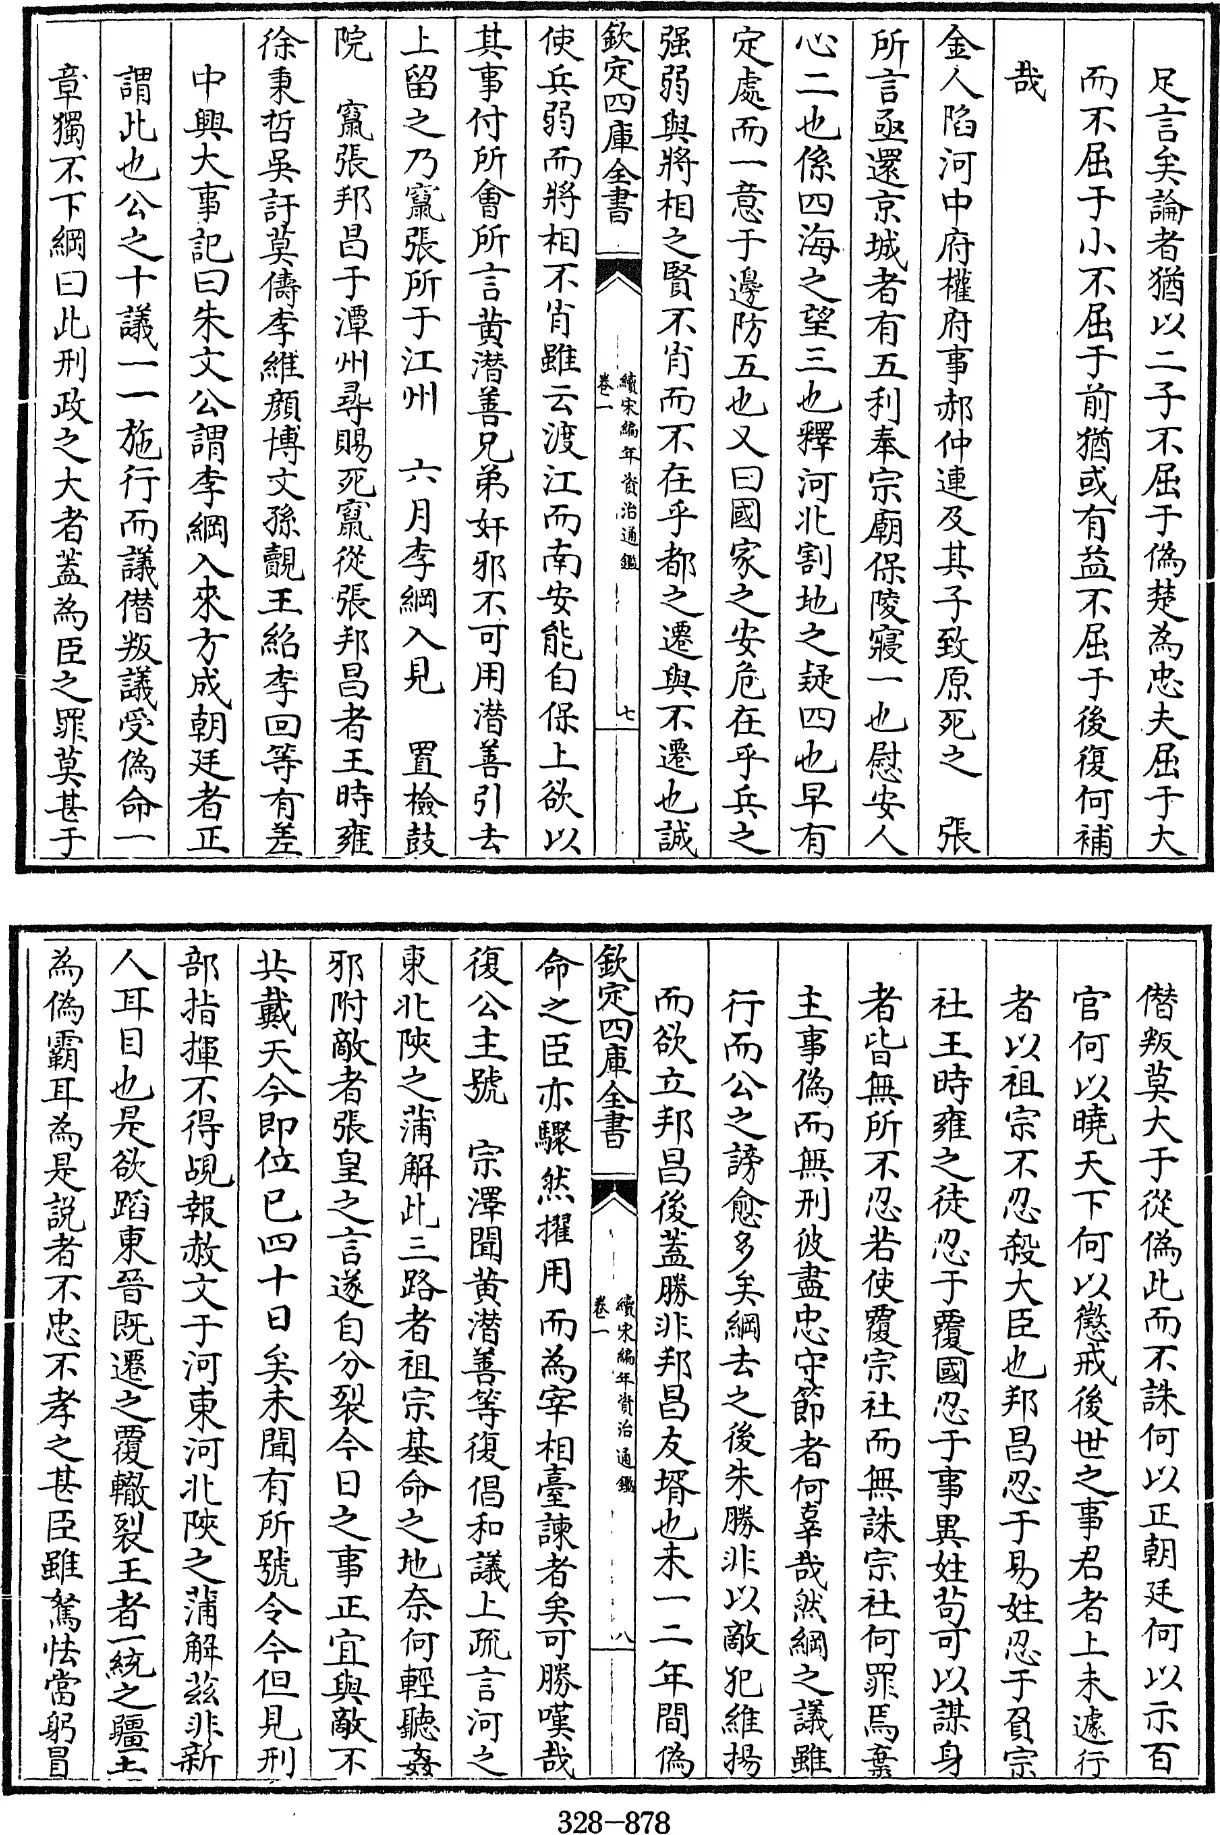 足言矣論者猶以二子不屈于偽楚為忠夫屈于大
而不屈于小不屈于前猶或有益不屈于後復何補
哉
金人陷河中府權府事郝仲連及其子致原死之　張
所言亟還京城者有五利奉宗廟保陵寢一也慰安人
心二也係四海之望三也釋河北割地之疑四也早有
定處而一意于邊防五也又曰國家之安危在乎兵之
强弱與將相之賢不肖而不在乎都之遷與不遷也誠
欽定四庫全書
續宋編年資治通鑑
卷一
七
使兵弱而將相不肖雖云渡江而南安能自保上欲以
其事付所會所言黄潜善兄弟奸邪不可用潜善引去
上留之乃竄張所于江州　六月李綱入見　置檢鼓
院　竄張邦昌于潭州尋賜死竄從張邦昌者王時雍
徐秉哲吳幵莫儔李維顔博文孫覿王紹李回等有差
中興大事記曰朱文公謂李綱入來方成朝廷者正
謂此也公之十議一一施行而議僭叛議受偽命一
章獨不下綱曰此刑政之大者蓋為臣之罪莫甚于
僭叛莫大于從偽此而不誅何以正朝廷何以示百
官何以曉天下何以懲戒後世之事君者上未遽行
者以祖宗不忍殺大臣也邦昌忍于易姓忍于負宗
社王時雍之徒忍于覆國忍于事異姓茍可以謀身
者皆無所不忍若使覆宗社而無誅宗社何罪焉棄
主事偽而無刑彼盡忠守節者何辜哉然綱之議雖
行而公之謗愈多矣綱去之後朱勝非以敵犯維揚
而欲立邦昌後蓋勝非邦昌友壻也未一二年間偽
欽定四庫全書
續宋編年資治通鑑
卷一
八
命之臣亦驟然擢用而為宰相臺諫者矣可勝嘆哉
復公主號　宗澤聞黄潜善等復倡和議上疏言河之
東北陜之蒲解此三路者祖宗基命之地奈何輕聽姦
邪附敵者張皇之言遂自分裂今日之事正宜與敵不
共戴天今即位已四十日矣未聞有所號令今但見刑
部指揮不得覘報赦文于河東河北陜之蒲解兹非新
人耳目也是欲蹈東晉既遷之覆轍裂王者一統之疆土
為偽霸耳為是説者不忠不孝之甚臣雖駑怯當躬冒
328-878